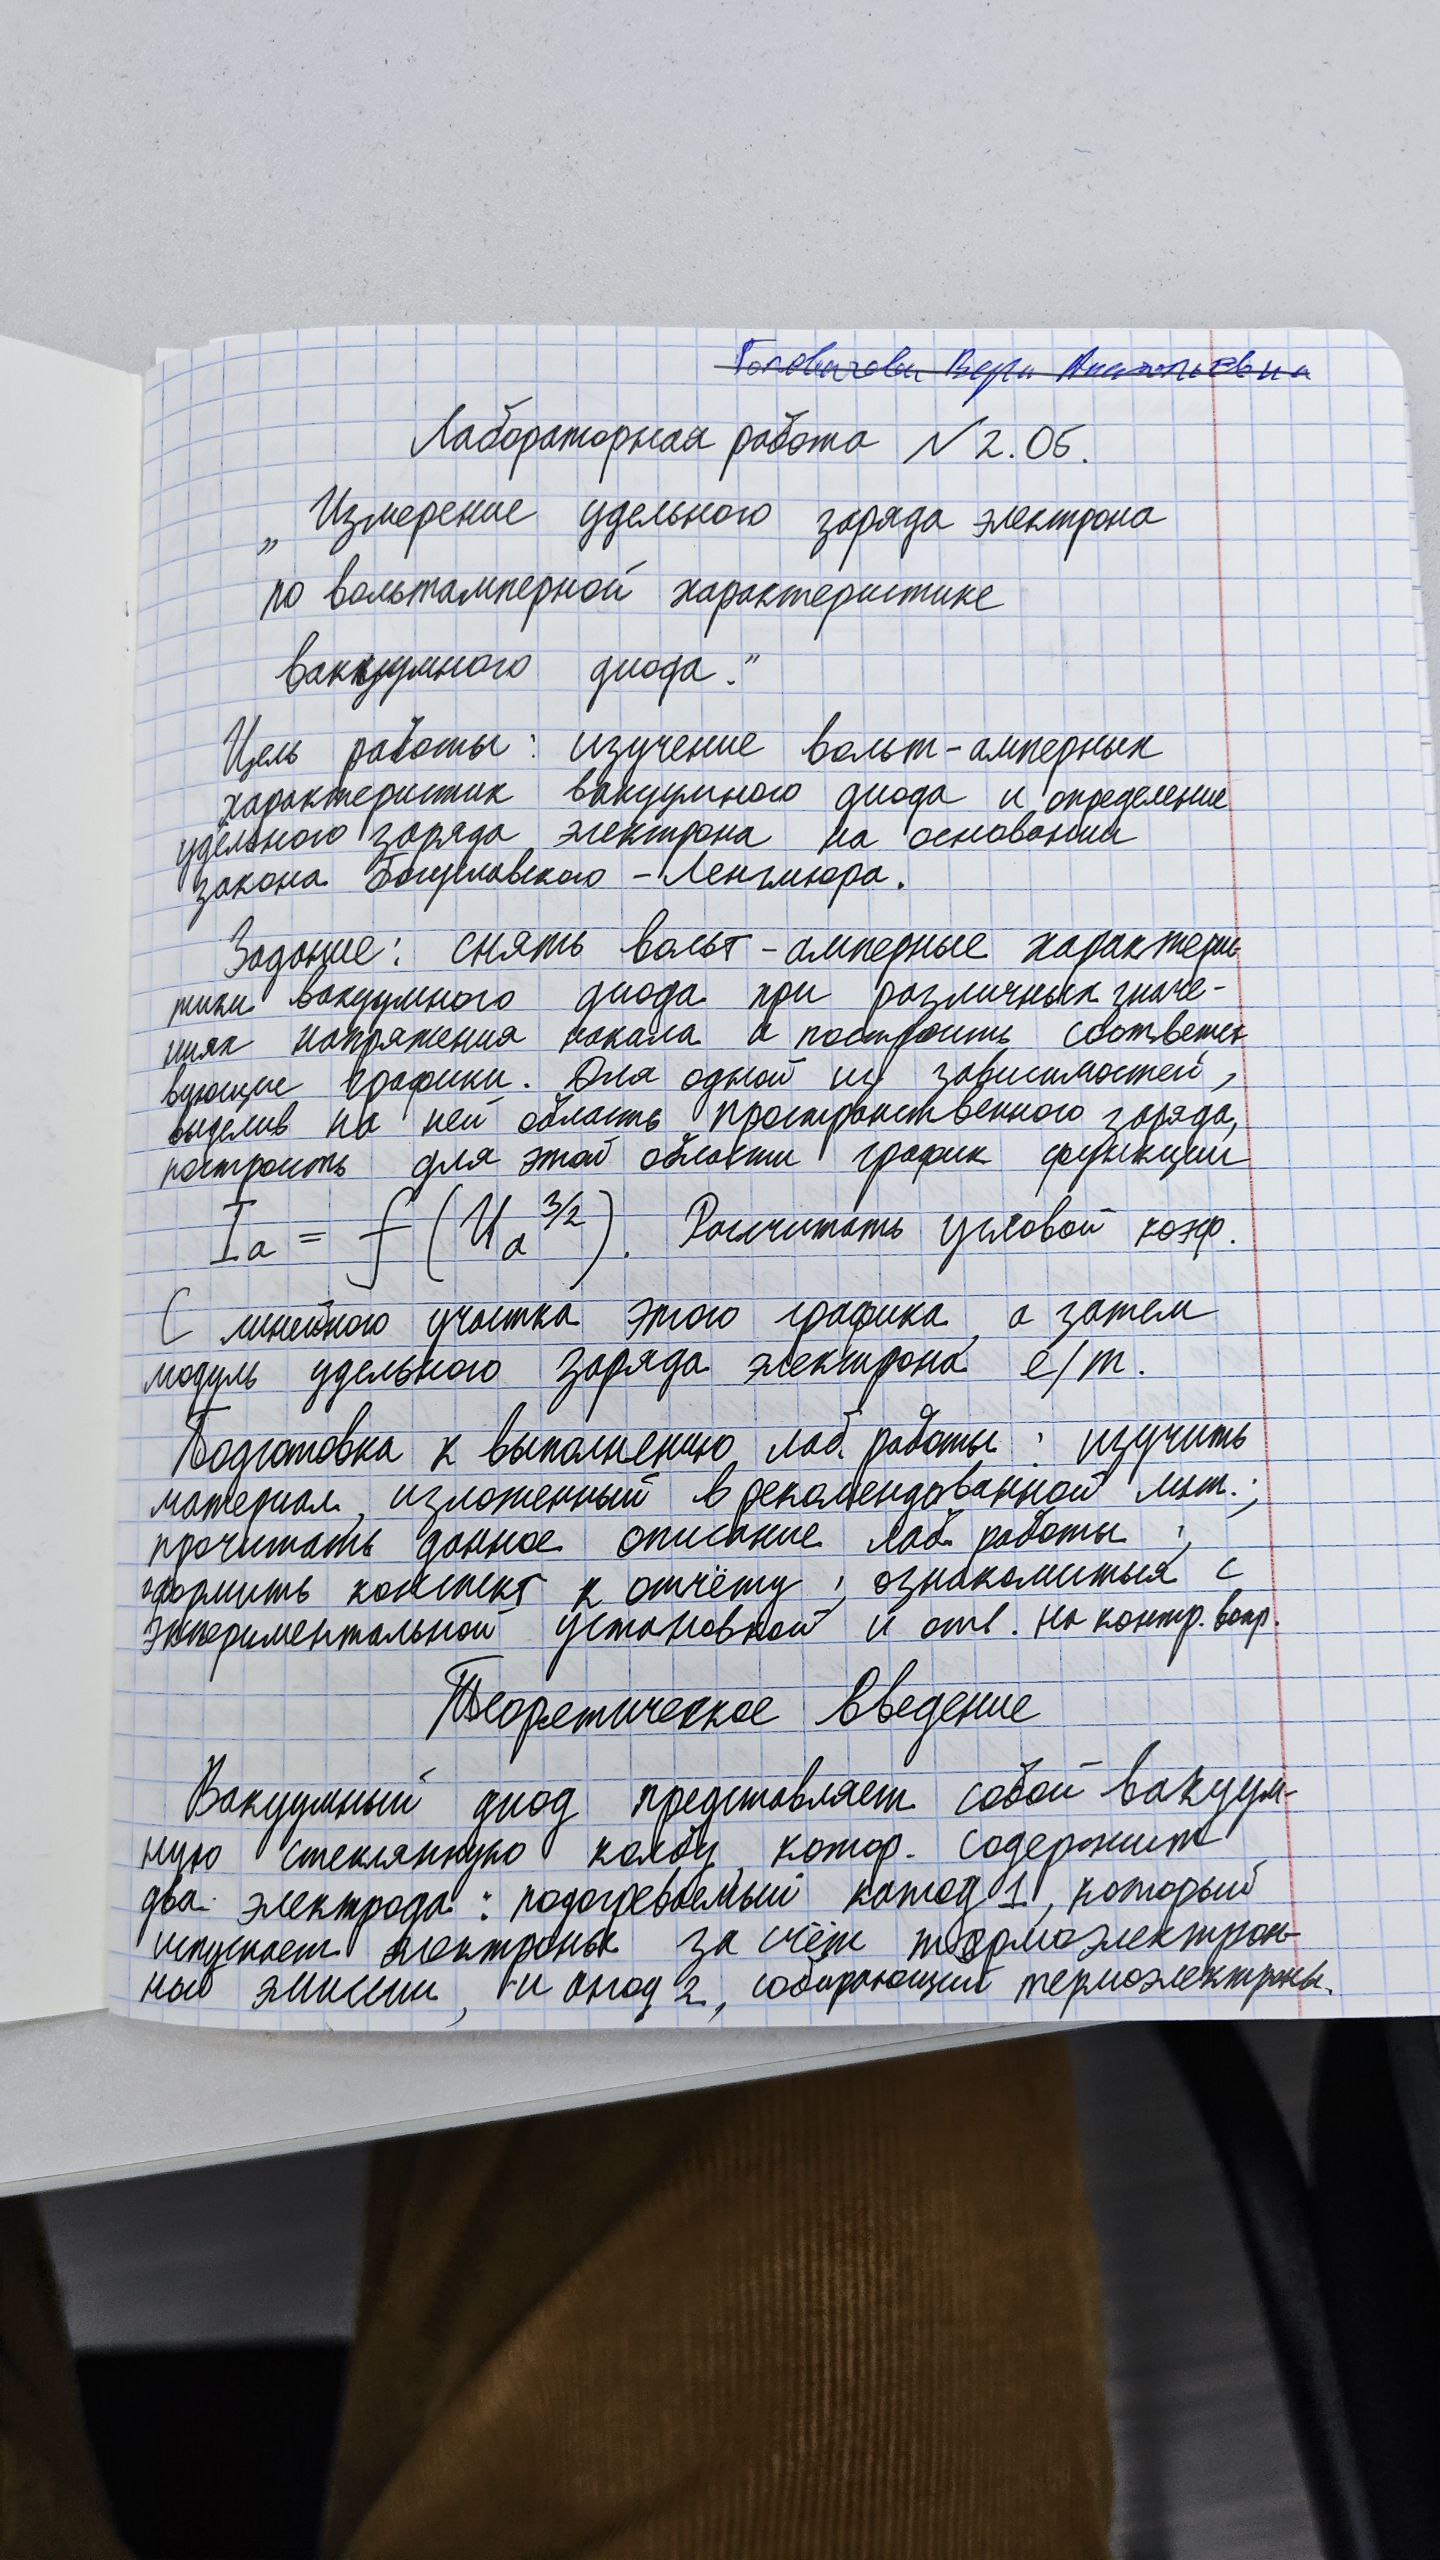 Головизова Вера Анатольевна
Лабораторная работа N 2.05.
„Измерение удельного заряда электрона
по вольтамперной характеристике
вакуумного диода."
Цель работы: изучение вольт-амперных
характеристик вакуумного диода и определение
удельного заряда электрона на основании
закона Богуславского-Ленгмюра.
Задание: снять вольт-амперные характерис
тики вакуумного диода при различных значе-
ниях напряжения накала и построить соответст
вующие графики. Для одной из зависимостей,
выделив на ней область пространственного заряда,
построить для этой области график функции
Iа = f (Uа^3/2). Рассчитать угловой коэф.
С линейного участка этого графика, а затем
модуль удельного заряда электрона e/m.
Подготовка к выполнению лаб. работы: изучить
материал, изложенный в рекомендованной лит.;
прочитать данное описание лаб. работы;
оформить конспект к отчёту; ознакомиться с
экспериментальной установкой и отв. на контр. вопр.
Теоретическое введение
Вакуумный диод представляет собой вакуум-
ную стеклянную колбу, котор. содержит
два электрода: подогреваемый катод 1, который
испускает электроны за счёт термоэлектрон-
ной эмиссии, и анод 2, собирающий термоэлектроны.